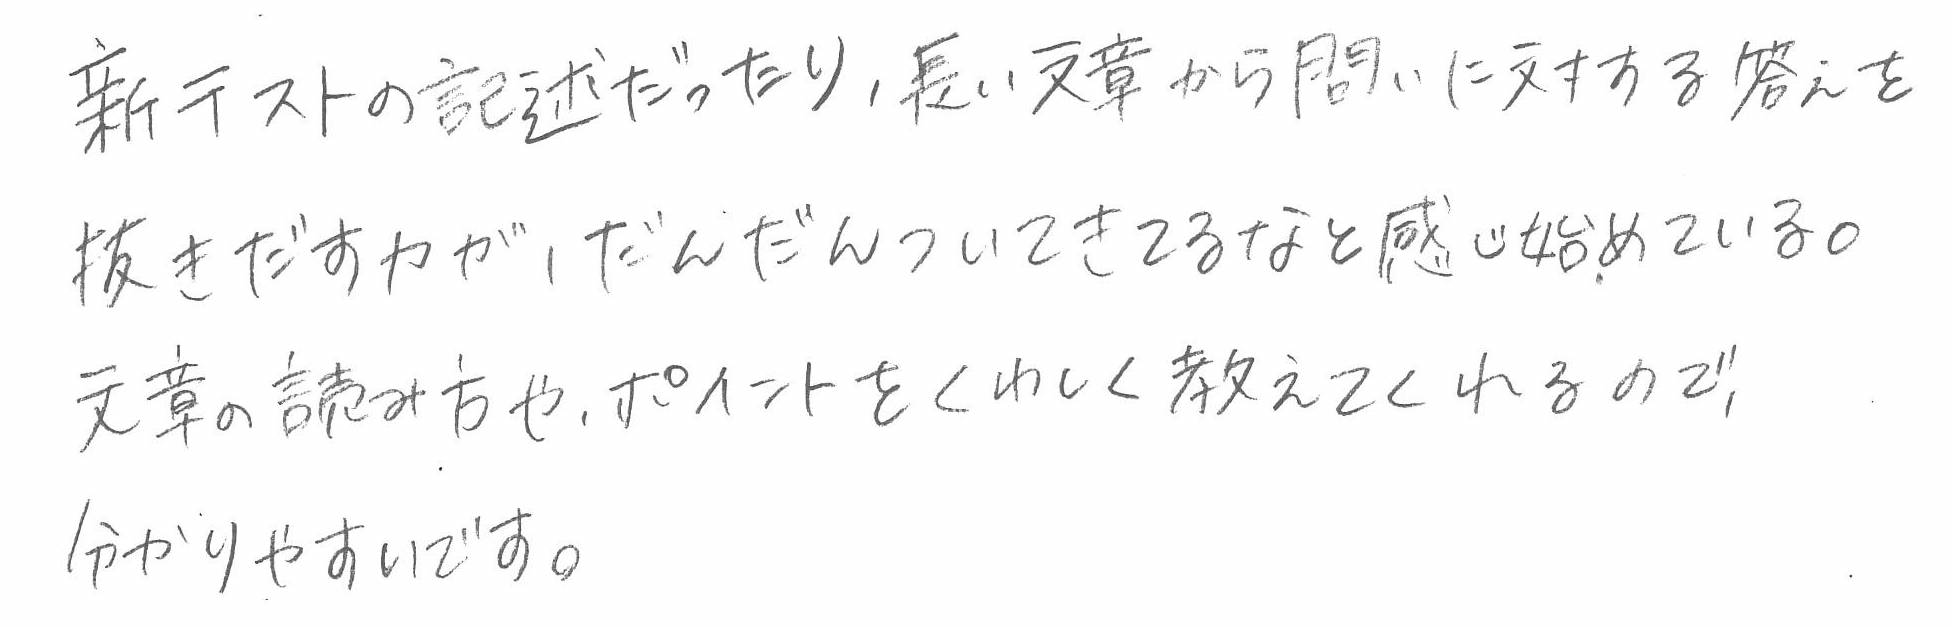 新テストの記述だったり,長い文章から問いに対する答えを
抜きだす力が,だんだんついてきてるなと感じ始めている。
文章の読み方や,ポイントをくわしく教えてくれるので,
分かりやすいです。